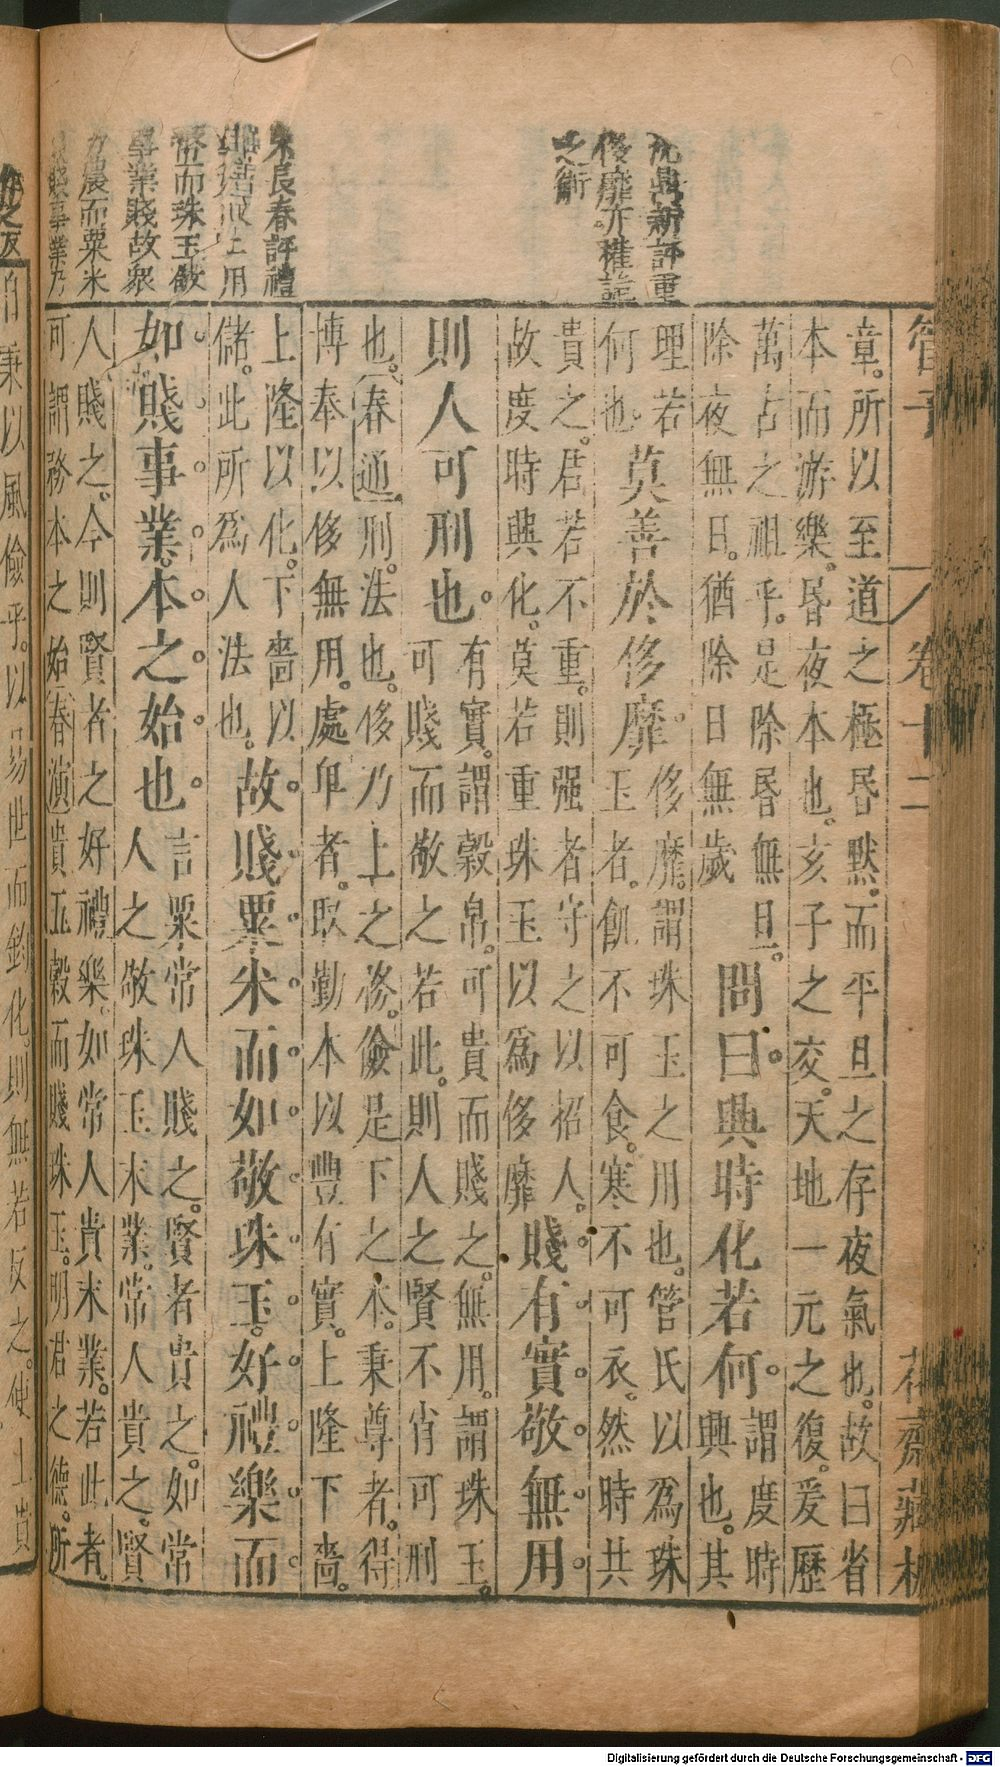 管子　卷十二　花齋藏板
沈鼎新評重
侈靡亦權
之術
朱長春評禮
樂而珠玉敬
事業賤故衆
力農而粟米
賤事業乃
章。所以至道之極昬默。而平旦之存夜氣也。故曰省
本而游樂。昬夜本也。亥子之交。天地一元之復。爰歷
萬古之祖乎。是除昬無旦。
除夜無日。猶除日無歲
問曰。與時化若何。
謂度時
興也。其
理若
何也。
莫善於侈靡。
侈靡。謂珠玉之用也。管氏以爲珠
玉者。飢不可食。寒不可衣。然時共
貴之。君若不重。則强者守之以招人。
故度時興化。莫若重珠玉以爲侈靡
賤有實。敬無用。
則人可刑也。
有實。謂穀帛。可貴而賤之。無用。謂珠玉。
可賤而敬之若此。則人之賢不肖可刑
也。春通刑。法也。侈乃上之務。儉是下之本。秉尊者。得
博奉以侈無用。處卑者。取勤本以豐有實。上隆下嗇。
上隆以化。下嗇以
儲。此所爲人法也。
故賤粟米而如敬珠玉。好禮樂而
如賤事業。本之始也。
言粟常人賤之。賢者貴之。如常
人之敬珠玉末業。常人貴之。賢
人賤之。今則賢者之好禮樂。如常人貴末業。若此者。
可謂務本之始春演貴五穀而賤珠玉。明君之德。所
自秉以風儉乎。以易世而鈞化。則無若反之。使上貴
Digitalisierung gefördert durch die Deutsche Forschungsgemeinschaft - DFG